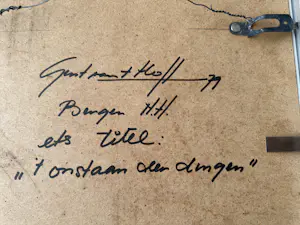 Gert van't Hoff 79
Bergen N.H.
ets titel:
"'t onstaan der dingen"